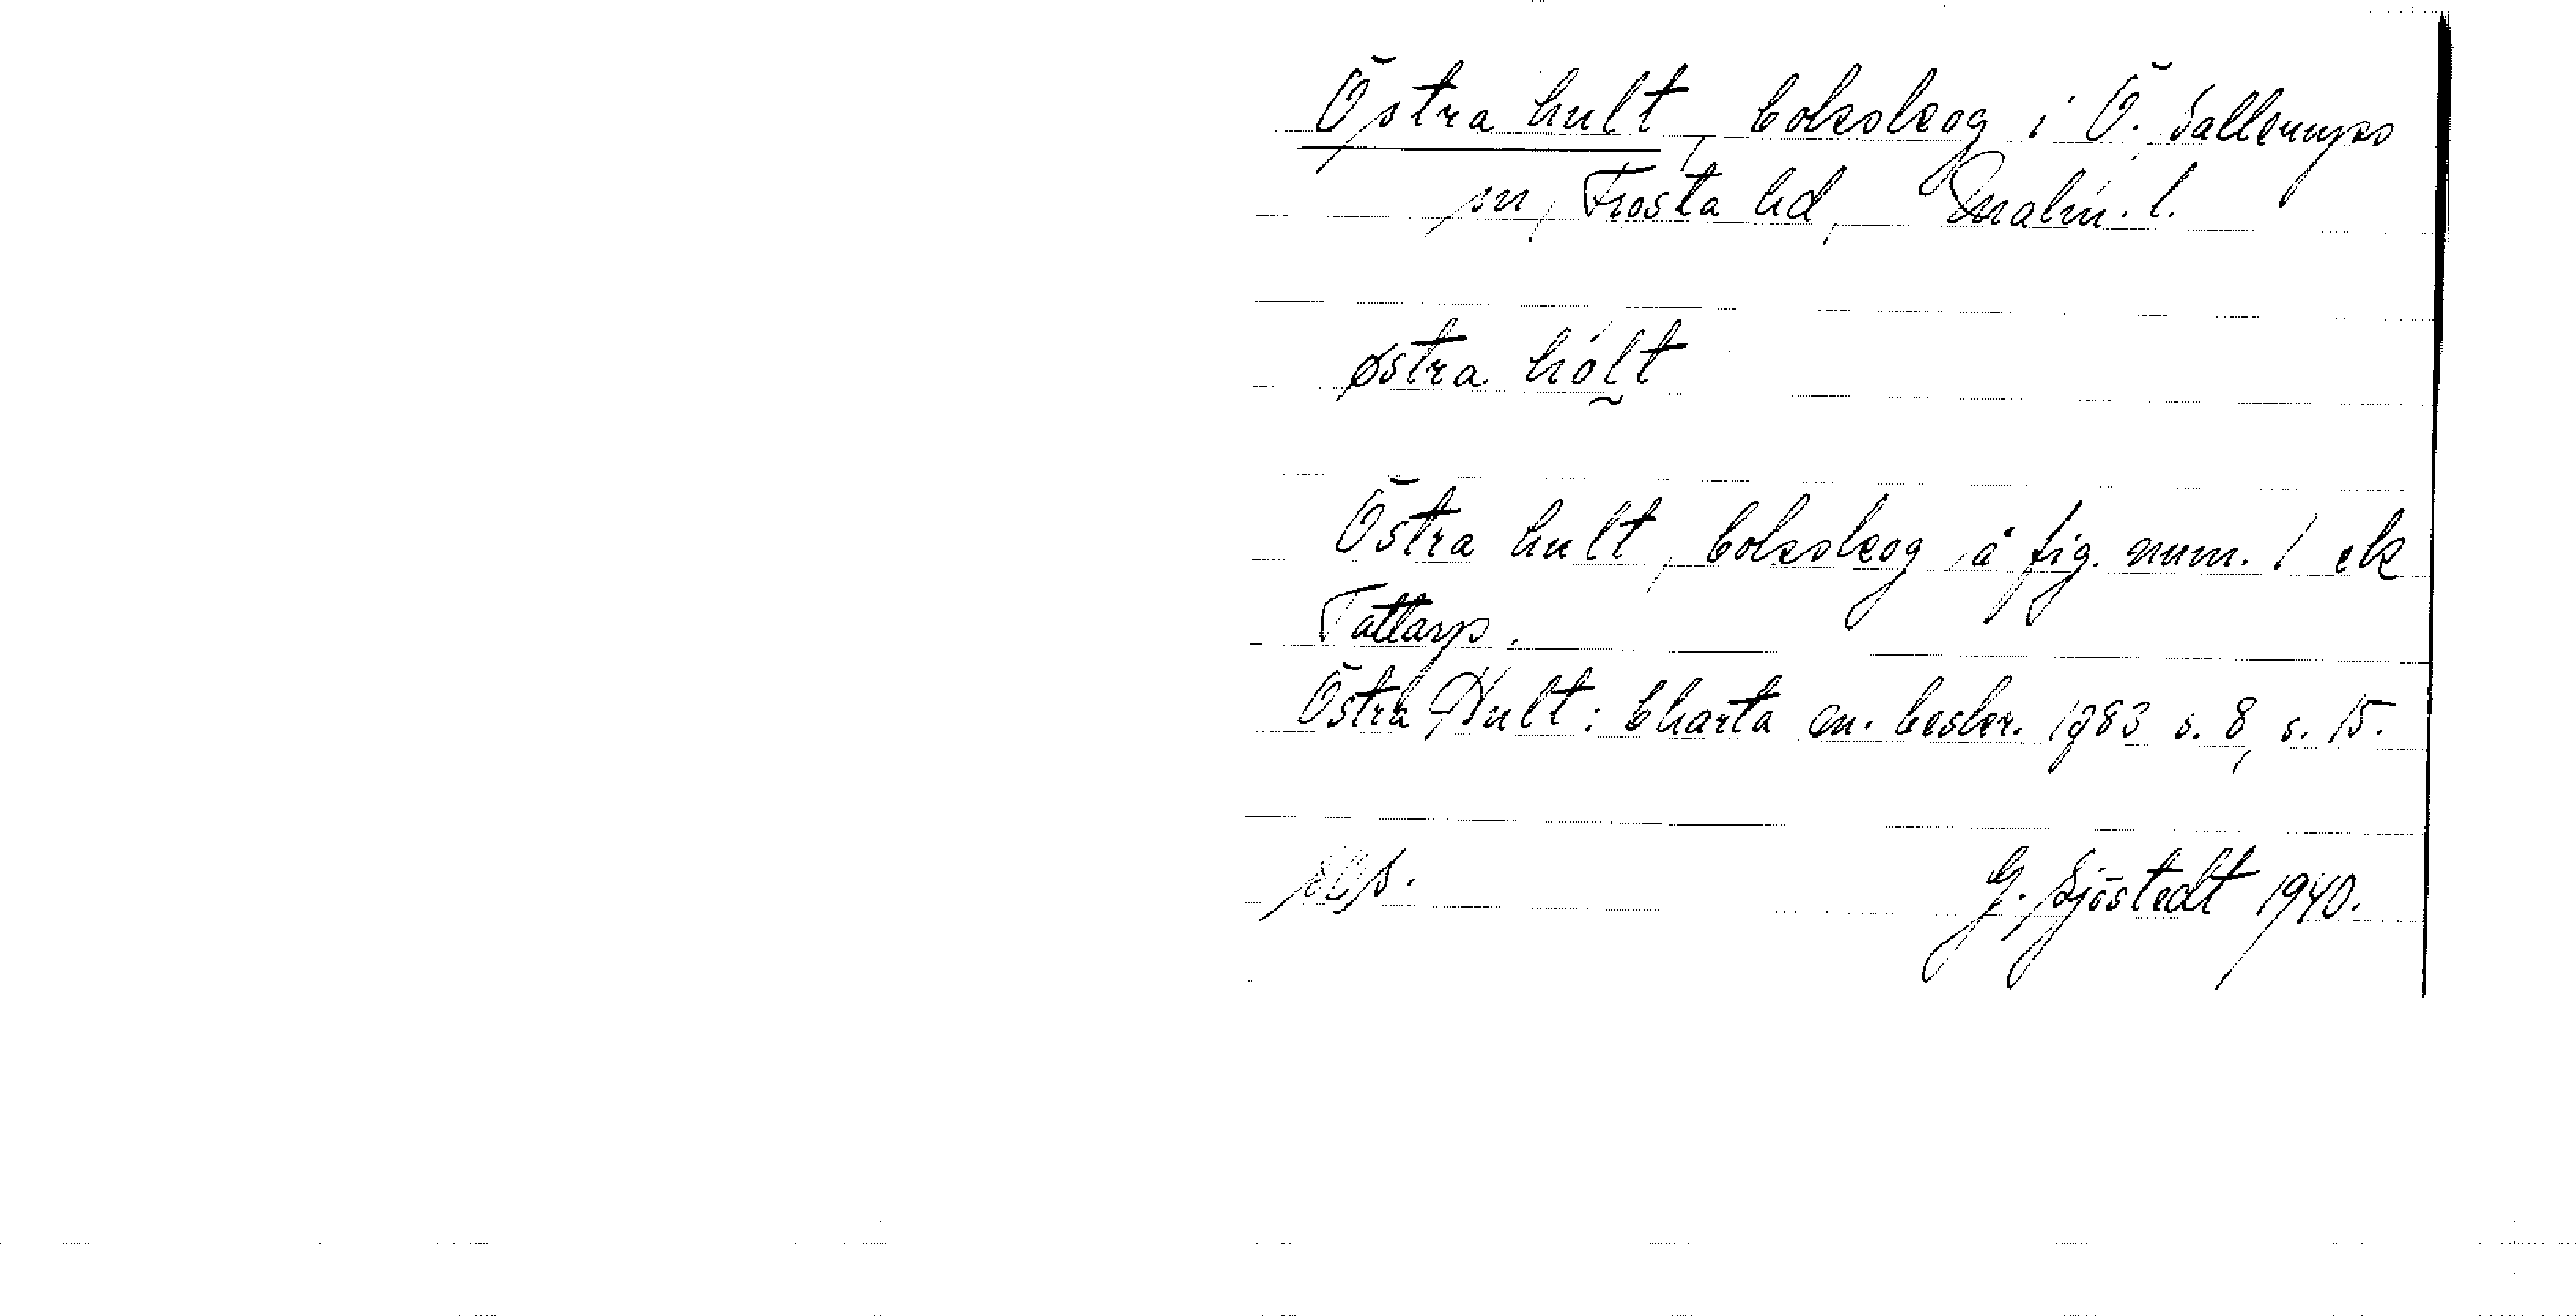 Östra hult, bokskog i Ö. Sallerups
sn, Frosta hd, Malm. l.
østra hólt
Östra hult, bokskog å fig. num. 1 ek
Tattarp.
Östra Hult: Charta ö. beskr. 1983 s. 8, s. 15.
G. Sjöstedt 1940.